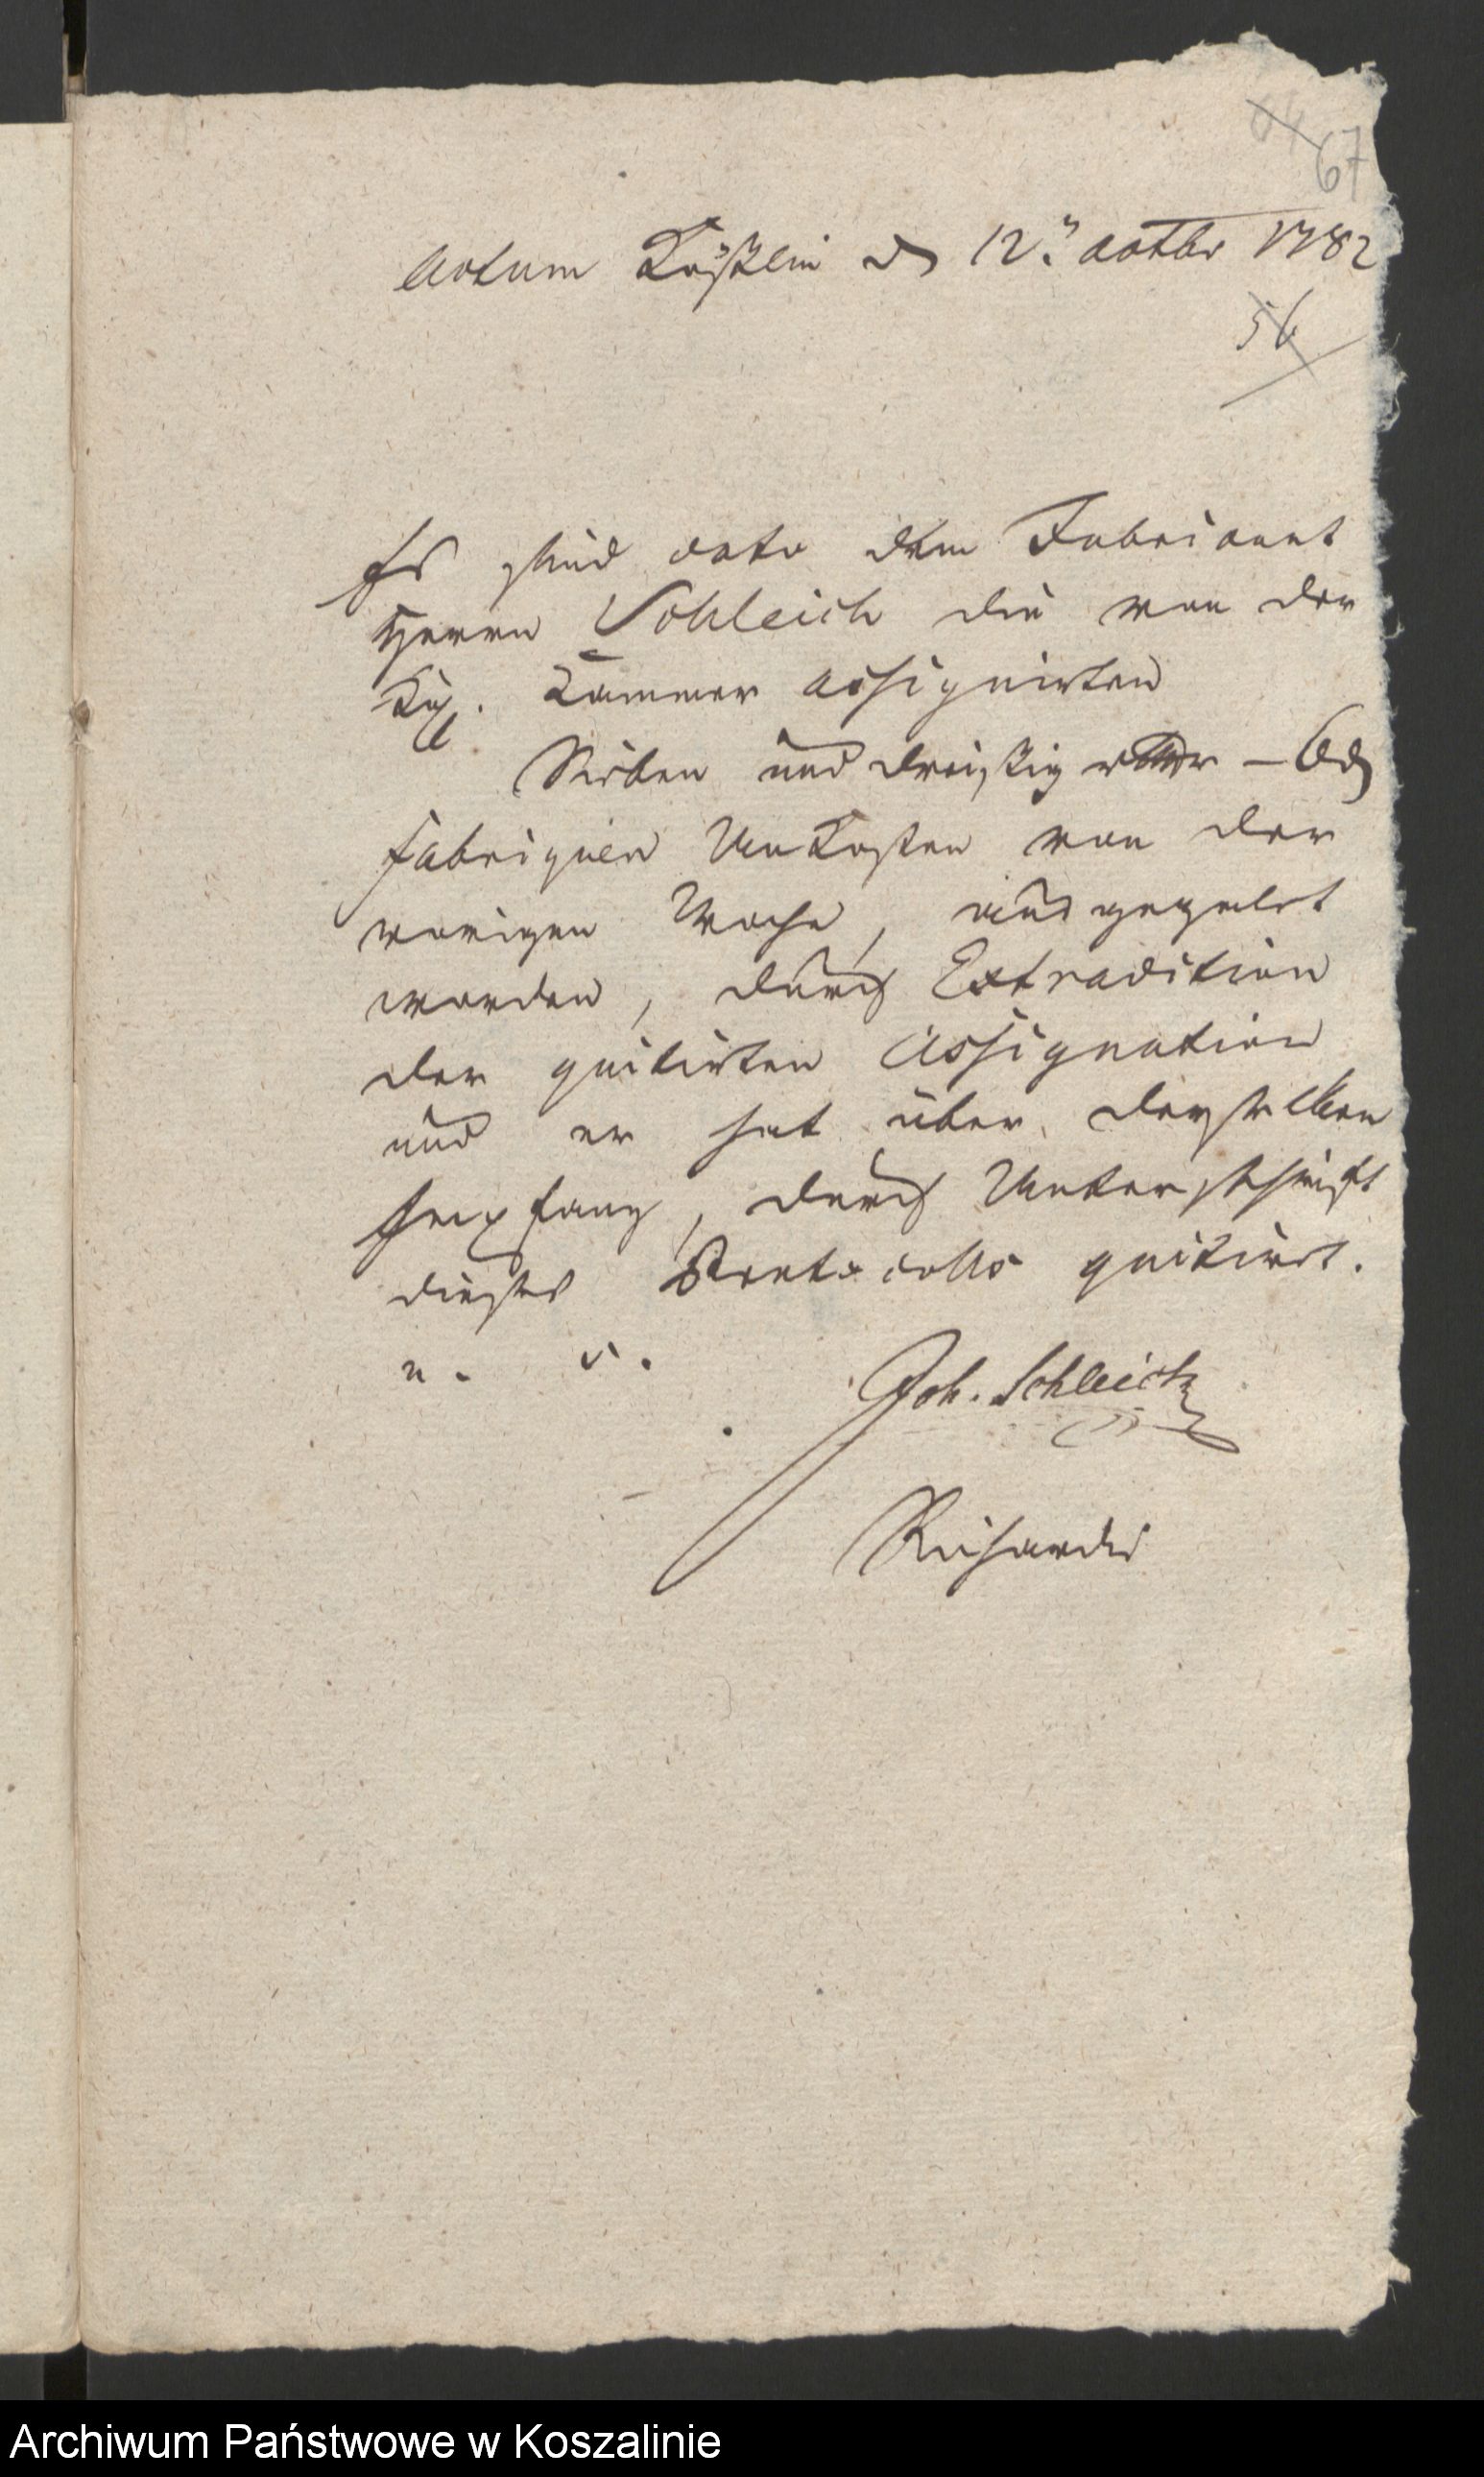 67
Actum Cößlin d 12. octbr 1782
56
Es sind dato dem Fabricant
Herrn Schleich die von der
Kgl. Cammer assignirten
Sieben und dreißig rthlr – 6 d
fabriquen Unkosten von der
vorigen Woche, ausgezalt
worden, durch Extradition
der quitirten Assignation
und er hat über derselben
Empfang, durch Unterschrift
dieses Protocolls quitiert.
u. s.
Joh. Schleich
Richardi
Archiwum Państwowe w Koszalinie